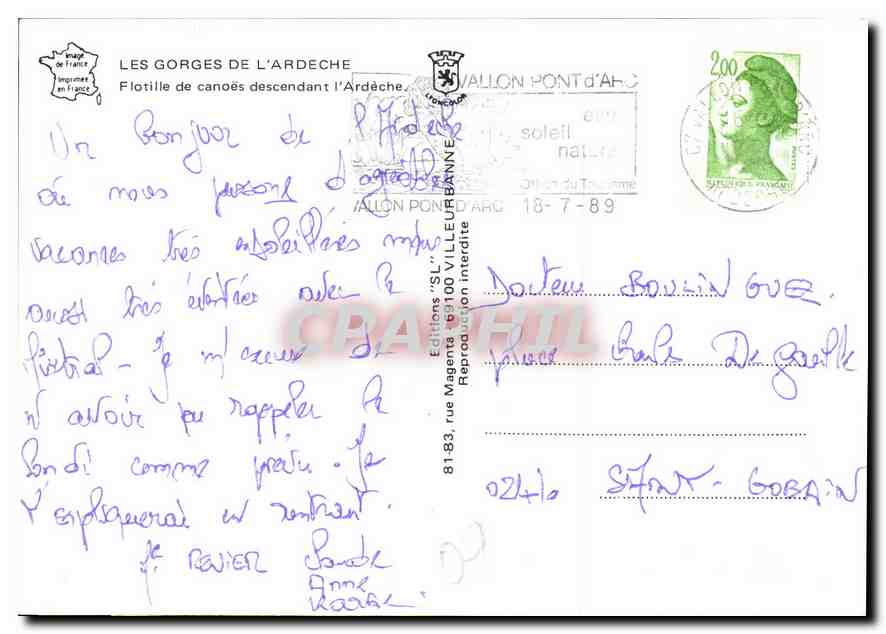 Image
de France
Imprimée
en France
LES GORGES DE L'ARDECHE
Flotille de canoës descendant l'Ardèche.
LYONCOLOR
VALLON PONT d'ARC
eau
soleil
nature
Office du Tourisme
VALLON PONT D'ARC 18-7-89
2,00
REPUBLIQUE FRANÇAISE
POSTES
Un bonjour de l'Ardèche
où nous passons d'agréables
vacances très ensoleillées mais
aussi très éventées avec le
Mistral - Je m'excuse de
n'avoir pu rappeler le
lundi comme prévu. Je
t'expliquerai en rentrant.
Editions "SL"
81-83, rue Magenta - 69100 VILLEURBANNE
Reproduction interdite
Docteur BOULINGUEZ.
place Charles De Gaulle
02410 SAINT-GOBAIN
Anne
CPAPHIL